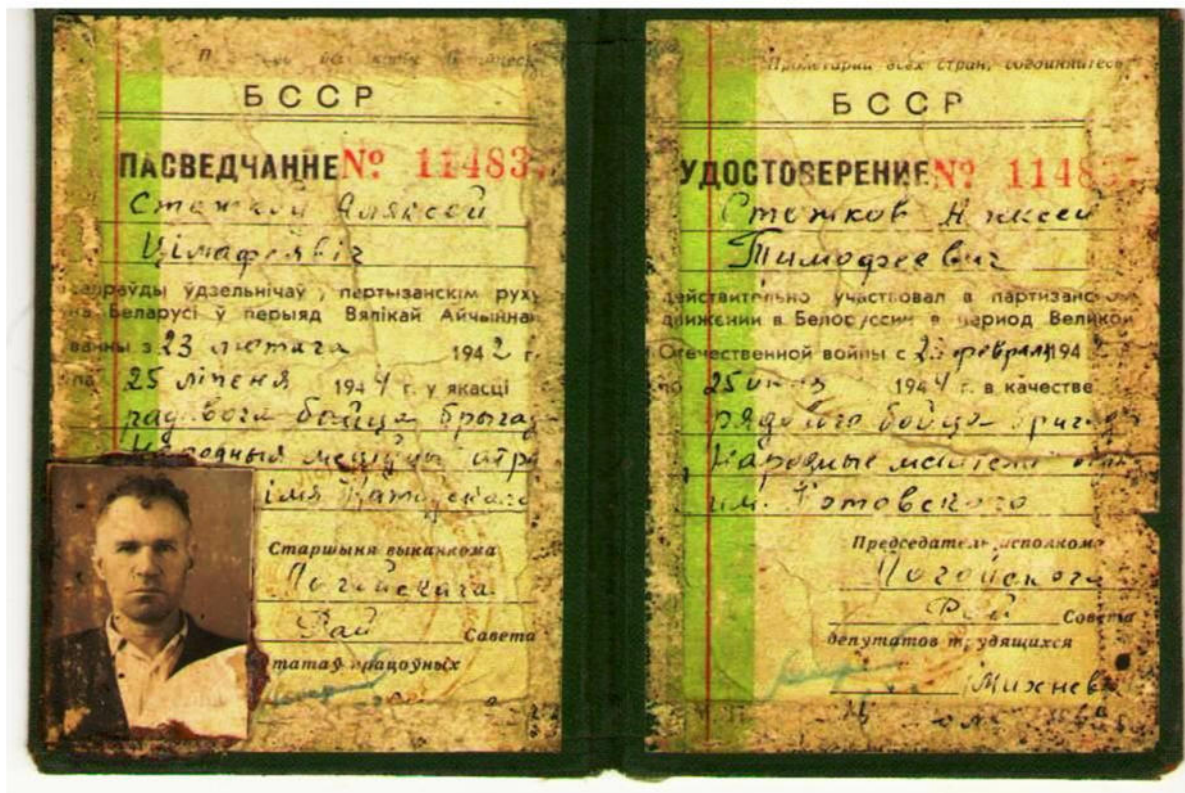 БССР
ПАСВЕДЧАННЕ № 11483
Аляксей
Цімафеявіч
сапраўды ўдзельнічаў партызанскім руху
на Беларусі ў перыяд Вялікай Айчыннай
вайны з 23 лютага 1942 г.
па 25 ліпеня 1944 г. у якасці
радавога байца брыгады
Народныя мсціўцы
імя Катоўскага
Старшыня выканкома
Лагойскага
Рай Савета
працоўных
Пролетарии всех стран, соединяйтесь
БССР
УДОСТОВЕРЕНИЕ № 1148
Стожков Алексей
Тимофеевич
действительно участвовал в партизанском
движении в Белоруссии в период Великой
Отечественной войны с 23 февраля 194
по 25 1944 г. в качестве
рядового бойца бригады
Народные мстители
им. Котовского
Председатель исполкома
Логойского
Рай Совета
депутатов трудящихся